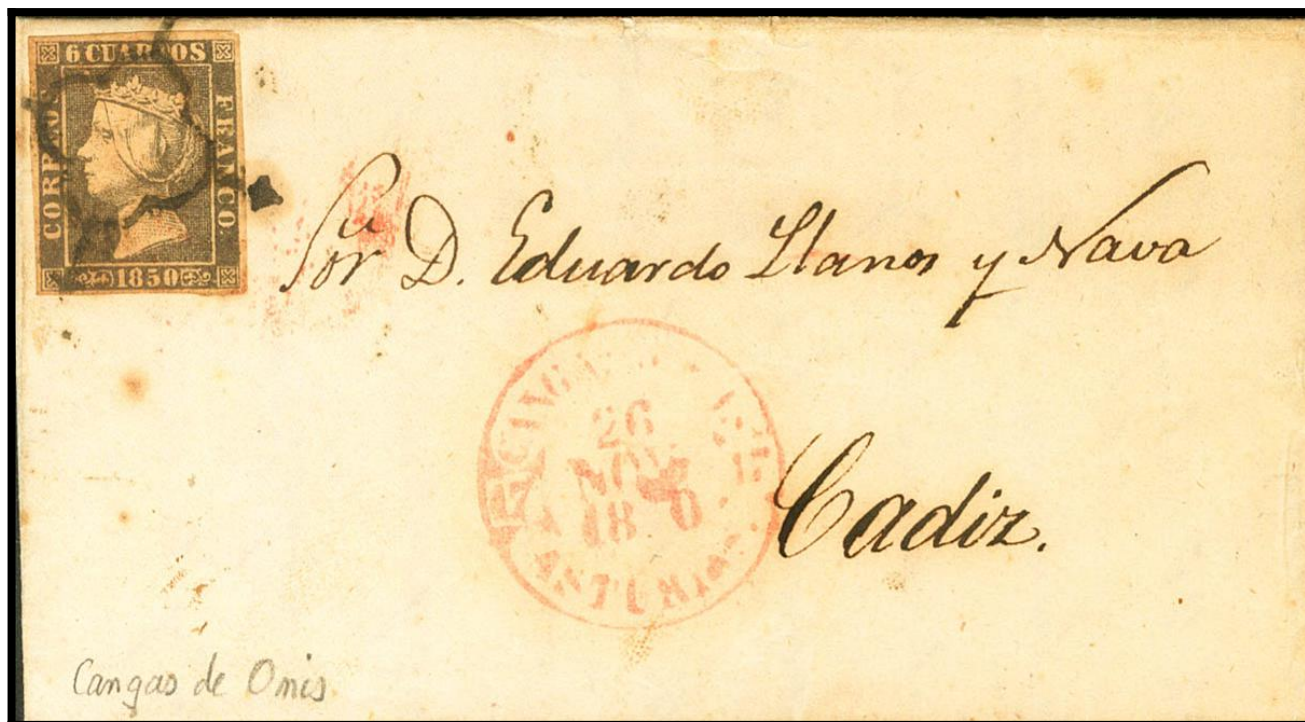 6 CUARTOS
CORREOS
FRANCO
1850
Sor D. Eduardo Llanos y Nava
26
NOV
Cadiz.
ASTURIAS
Cangas de Onis